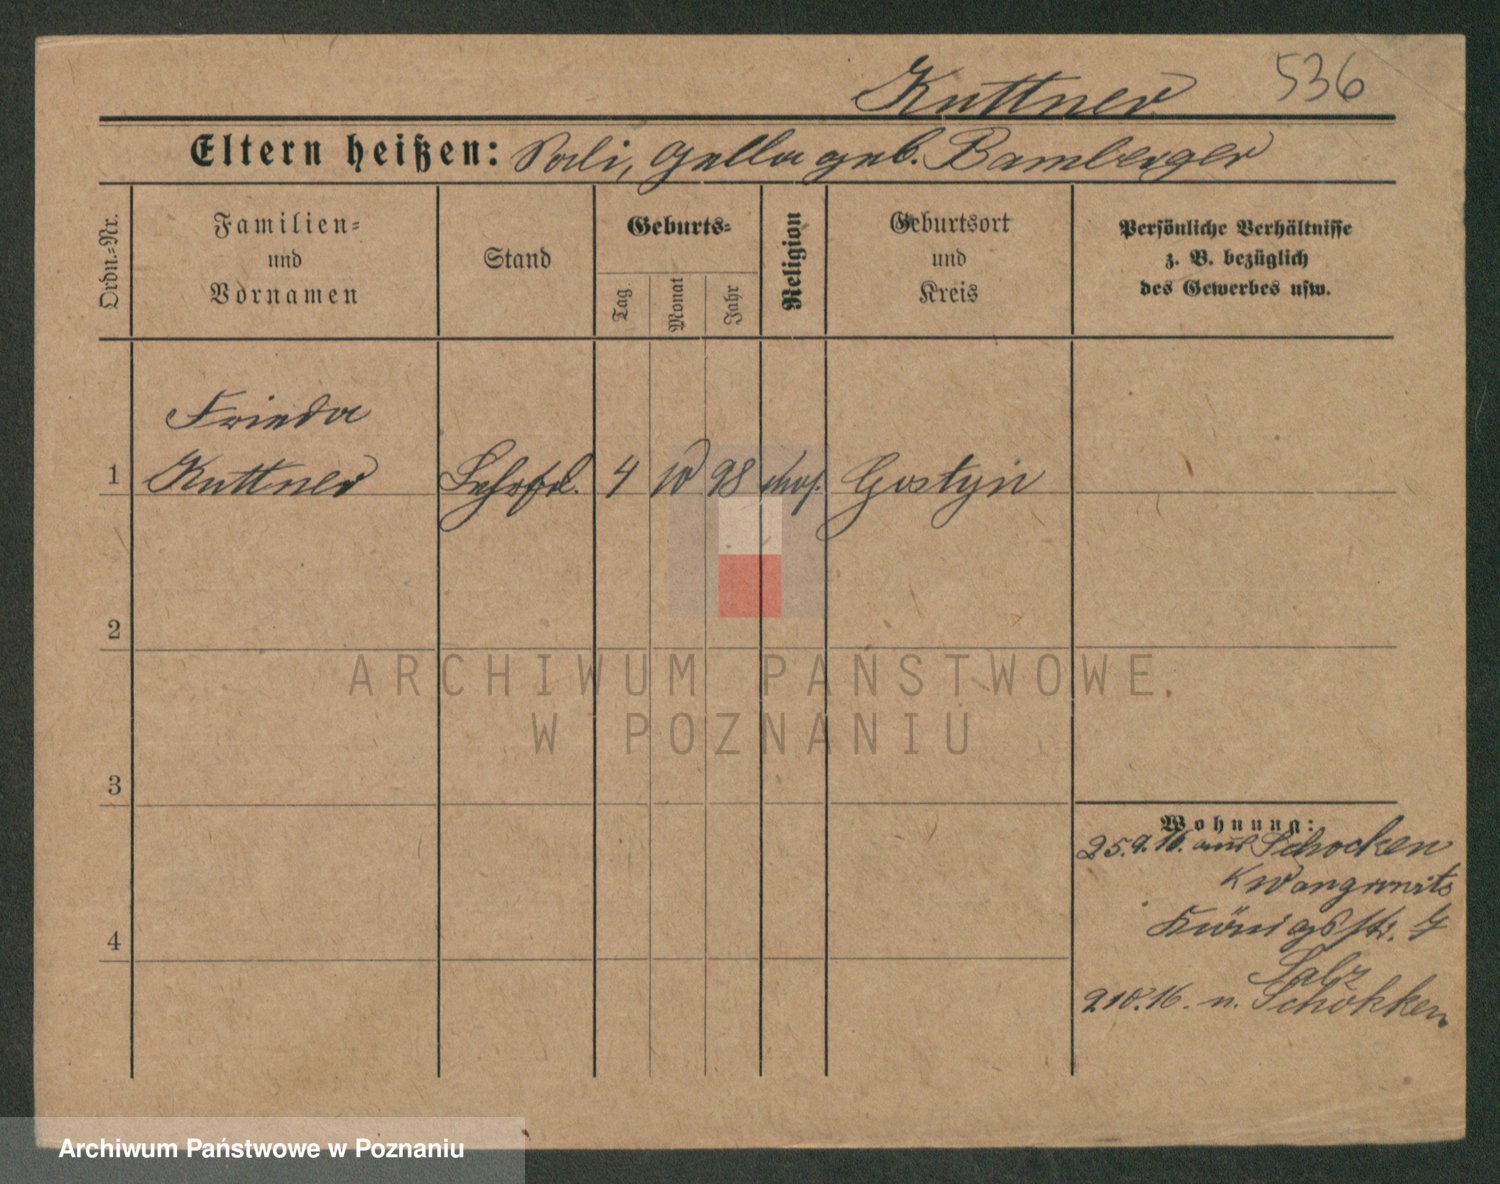 Kuttner 536
Eltern heißen: Sali, Gella geb. Bamberger
Ordn.-Nr.
Familien-
und
Vornamen
Stand
Geburts-
Tag
Monat
Jahr
Religion
Geburtsort
und
Kreis
Persönliche Verhältnisse
z. B. bezüglich
des Gewerbes usw.
Frieda
1 Kuttner 4 10 98 mos. Gostyn
2
3
4
Wohnung:
25.9.16. aus Schocken
Königsstr. 7
Salz
2.10.16. n. Schokken
ARCHIWUM PAŃSTWOWE
W POZNANIU
Archiwum Państwowe w Poznaniu